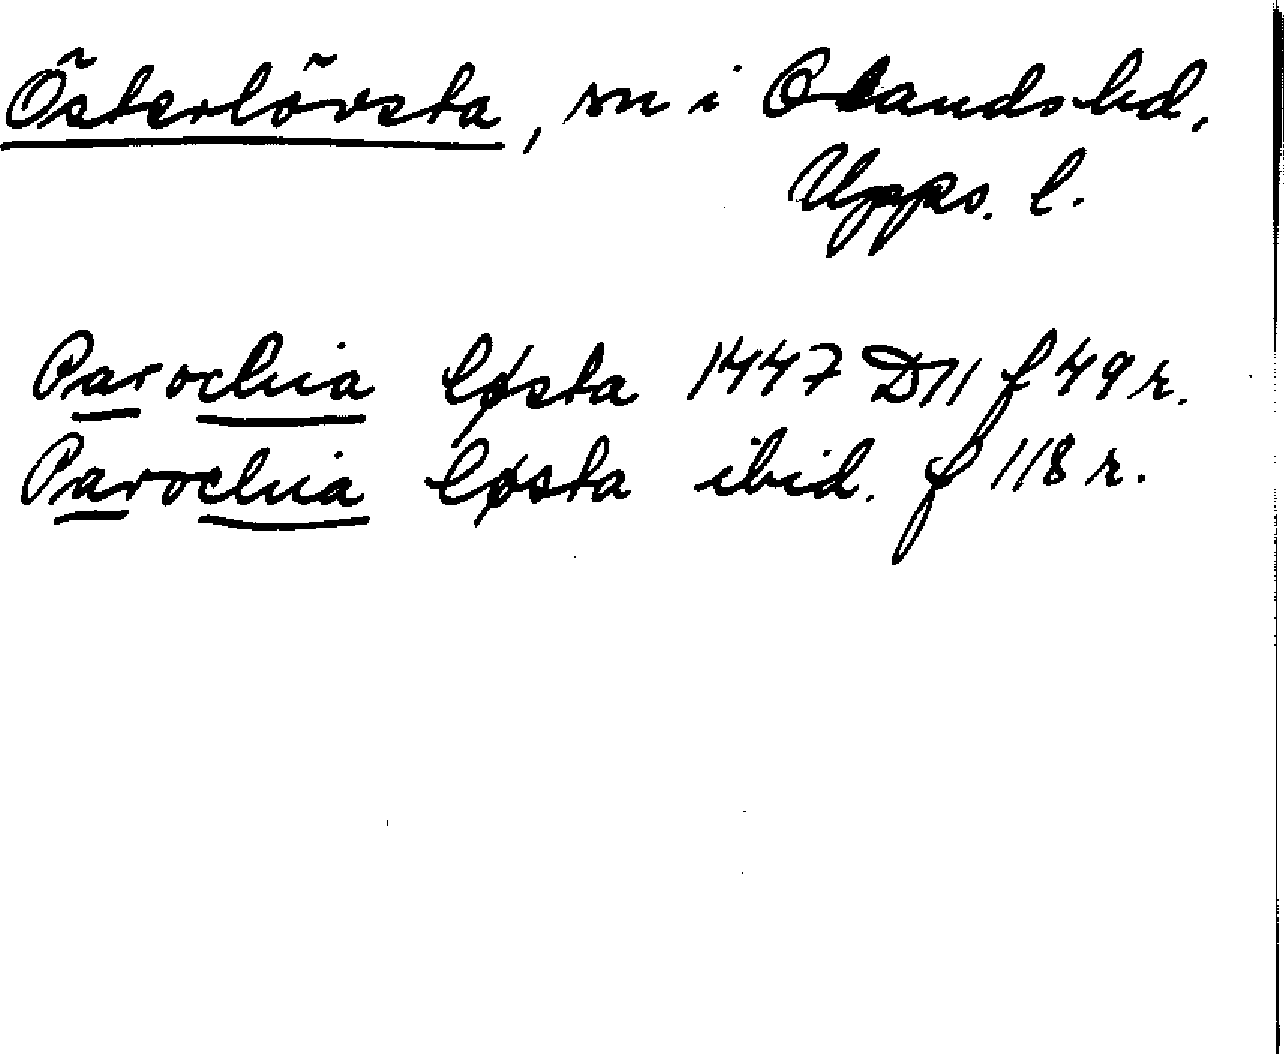 Österlövsta, sn i Olands hd,
Upps. l.
Parochia løsta 1447 D11 f 49 r.
Parochia løsta ibid. f 118 r.